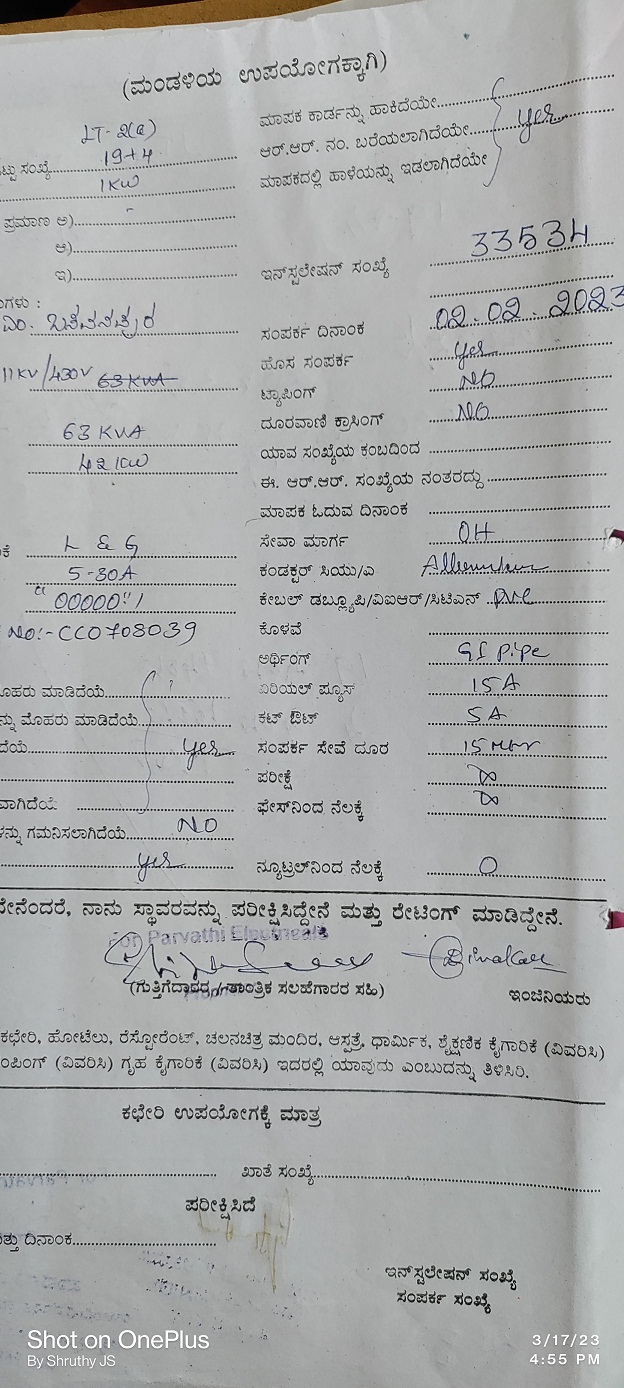 (ಮಂಡಳಿಯ ಉಪಯೋಗಕ್ಕಾಗಿ)
LT-2(a)
ಮಾಪಕ ಕಾರ್ಡನ್ನು ಹಾಕಿದೆಯೇ
ಟ್ಟು ಸಂಖ್ಯೆ 19+4
ಆರ್.ಆರ್. ನಂ. ಬರೆಯಲಾಗಿದೆಯೇ yes
1KW
ಮಾಪಕದಲ್ಲಿ ಹಾಳೆಯನ್ನು ಇಡಲಾಗಿದೆಯೇ
ಪ್ರಮಾಣ ಅ) -
ಆ)
ಇ)
ಇನ್‌ಸ್ಟಲೇಷನ್ ಸಂಖ್ಯೆ 33534
ಗಳು :
ಸಂಪರ್ಕ ದಿನಾಂಕ 02.02.2023
ಹೊಸ ಸಂಪರ್ಕ yes
11KV/430V 63KVA
ಟ್ಯಾಪಿಂಗ್ NO
63 KVA
ದೂರವಾಣಿ ಕ್ರಾಸಿಂಗ್ NO
42 KW
ಯಾವ ಸಂಖ್ಯೆಯ ಕಂಬದಿಂದ
ಈ. ಆರ್.ಆರ್. ಸಂಖ್ಯೆಯ ನಂತರದ್ದು
ಮಾಪಕ ಓದುವ ದಿನಾಂಕ
ಕೆ L & G
ಸೇವಾ ಮಾರ್ಗ OH
5-30A
ಕಂಡಕ್ಟರ್ ಸಿಯು/ಎ
00000"1
ಕೇಬಲ್ ಡಬ್ಲ್ಯೂಪಿ/ವಿಐಆರ್/ಸಿಟಿಎನ್
NO:- CC0708039
ಕೊಳವೆ
ಅರ್ಥಿಂಗ್ GI pipe
ೊಹರು ಮಾಡಿದೆಯೆ
ಏರಿಯಲ್ ಪ್ಯೂಸ್ 15A
ನ್ನು ಮೊಹರು ಮಾಡಿದೆಯೆ
ಕಟ್ ಔಟ್ 5A
ದೆಯೆ yes
ಸಂಪರ್ಕ ಸೇವೆ ದೂರ 15 Mtr
ಪರೀಕ್ಷೆ ∞
ವಾಗಿದೆಯೆ
ಫೇಸ್‌ನಿಂದ ನೆಲಕ್ಕೆ ∞
ಳನ್ನು ಗಮನಿಸಲಾಗಿದೆಯೆ NO
yes
ನ್ಯೂಟ್ರಲ್‌ನಿಂದ ನೆಲಕ್ಕೆ 0
ೇನೆಂದರೆ, ನಾನು ಸ್ಥಾವರವನ್ನು ಪರೀಕ್ಷಿಸಿದ್ದೇನೆ ಮತ್ತು ರೇಟಿಂಗ್ ಮಾಡಿದ್ದೇನೆ.
For Parvathi Electricals
(ಗುತ್ತಿಗೆದಾರರ / ತಾಂತ್ರಿಕ ಸಲಹೆಗಾರರ ಸಹಿ)
ಇಂಜಿನಿಯರು
ಕಛೇರಿ, ಹೋಟೆಲು, ರೆಸ್ಟೋರೆಂಟ್, ಚಲನಚಿತ್ರ ಮಂದಿರ, ಆಸ್ಪತ್ರೆ, ಧಾರ್ಮಿಕ, ಶೈಕ್ಷಣಿಕ ಕೈಗಾರಿಕೆ (ವಿವರಿಸಿ)
ಂಪಿಂಗ್ (ವಿವರಿಸಿ) ಗೃಹ ಕೈಗಾರಿಕೆ (ವಿವರಿಸಿ) ಇದರಲ್ಲಿ ಯಾವುದು ಎಂಬುದನ್ನು ತಿಳಿಸಿರಿ.
ಕಛೇರಿ ಉಪಯೋಗಕ್ಕೆ ಮಾತ್ರ
ಖಾತೆ ಸಂಖ್ಯೆ
ಪರೀಕ್ಷಿಸಿದೆ
ತ್ತು ದಿನಾಂಕ
ಇನ್‌ಸ್ಟಲೇಷನ್ ಸಂಖ್ಯೆ
ಸಂಪರ್ಕ ಸಂಖ್ಯೆ
Shot on OnePlus
By Shruthy JS
3/17/23
4:55 PM